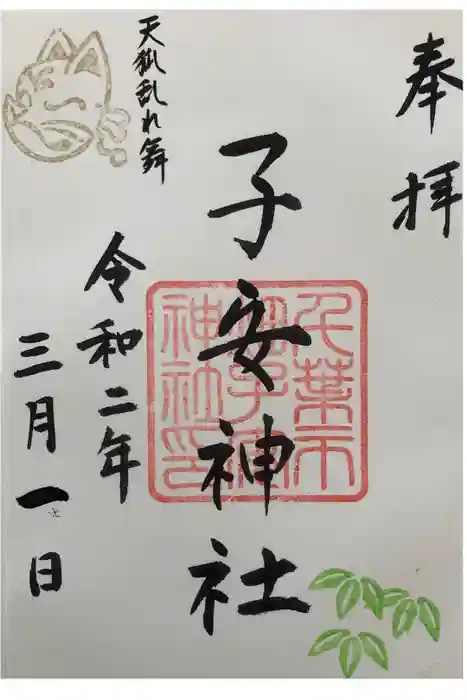 奉拝
子安神社
天狐乱れ舞
令和二年
三月一日
千葉市
神社印